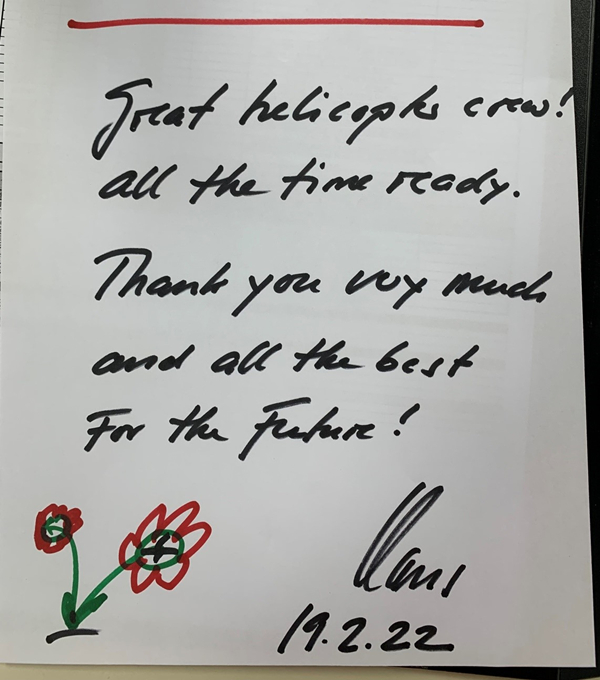 Great helicopter crew!
all the time ready.
Thank you very much
and all the best
For the Future!
Hans
19.2.22